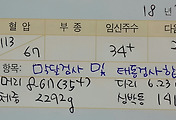 18 년
혈 압 부 종 임신주수 다음
113
67 34⁺
항목: 막달검사 및 태동검사
머리 8.67(35⁺) 다리 6.23
체중 2292g 심박동 141